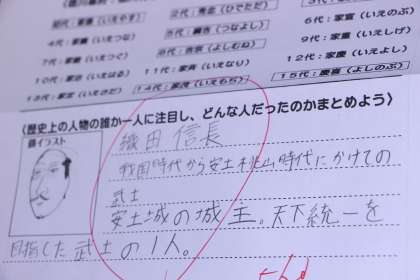 初代：家康（いえやす）
2代：秀忠（ひでただ）
4代：家綱（いえつな）
5代：綱吉（つなよし）
6代：家宣（いえのぶ）
7代：家継（いえつぐ）
8代：吉宗（よしむね）
9代：家重（いえしげ）
10代：家治（いえはる）
11代：家斉（いえなり）
12代：家慶（いえよし）
13代：家定（いえさだ）
14代：家茂（いえもち）
15代：慶喜（よしのぶ）
〈歴史上の人物の誰か一人に注目し、どんな人だったのかまとめよう〉
顔イラスト
織田信長
戦国時代から安土桃山時代にかけての
武士
安土城の城主。天下統一を
目指した武士の1人。